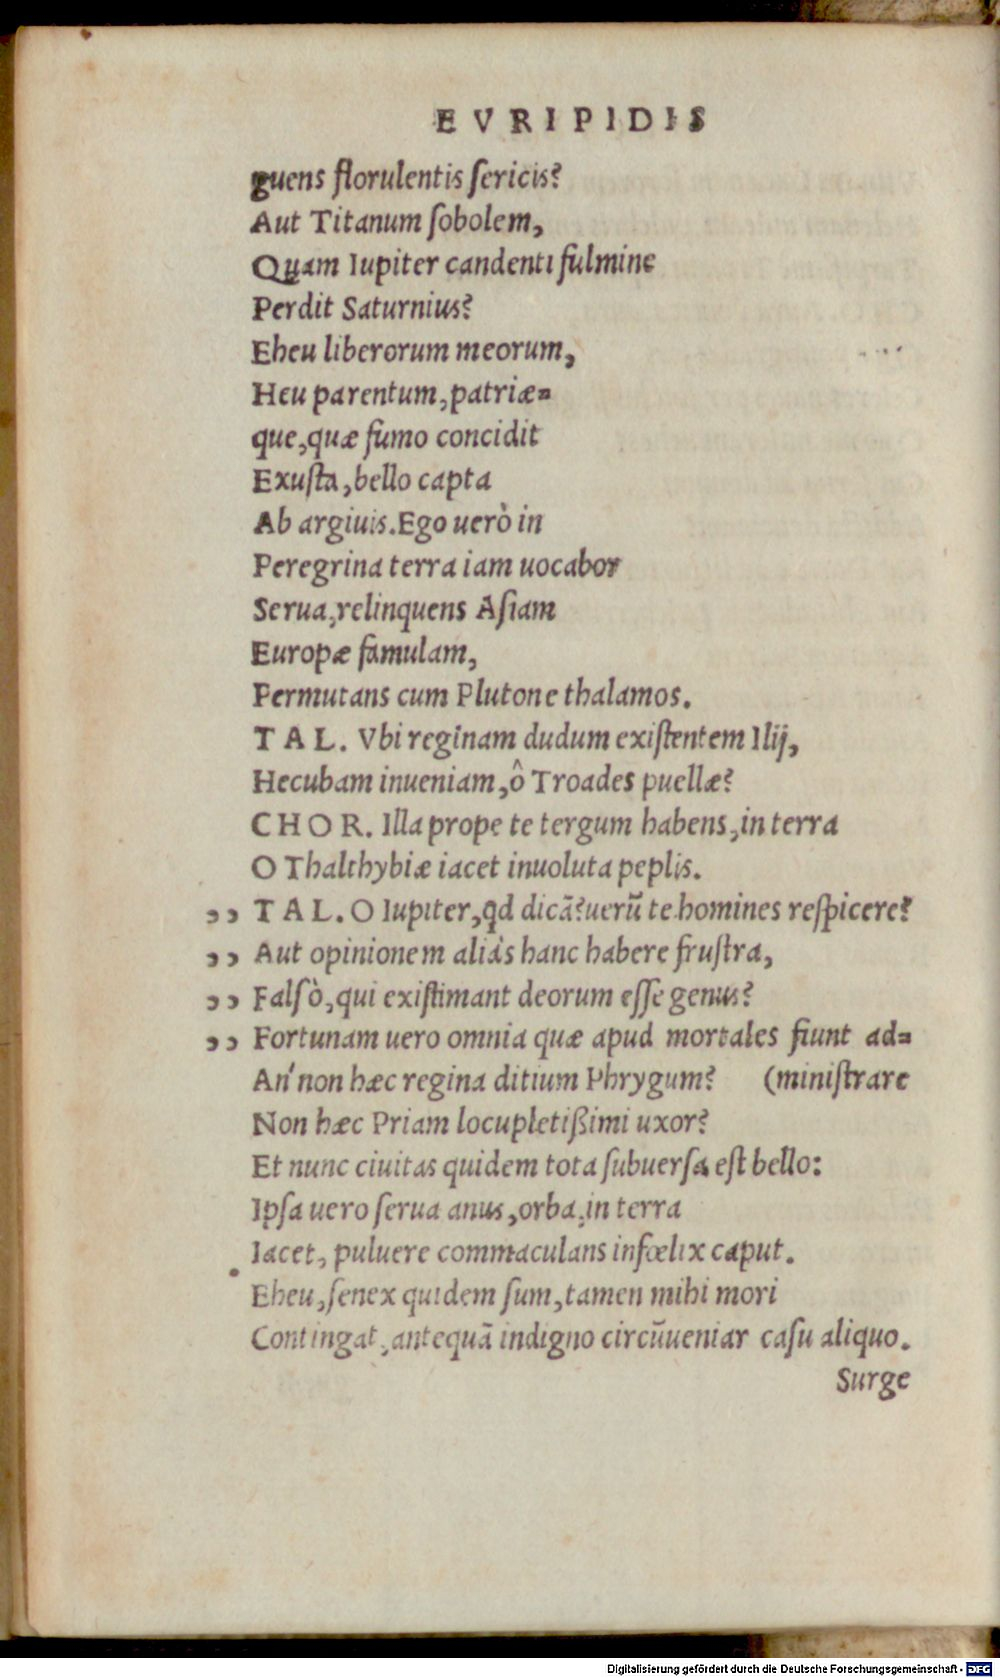 EVRIPIDIS
guens florulentis ſericis?
Aut Titanum ſobolem,
Quam Iupiter candenti fulmine
Perdit Saturnius?
Eheu liberorum meorum,
Heu parentum, patriæ=
que, quæ fumo concidit
Exuſta, bello capta
Ab argiuis. Ego uerò in
Peregrina terra iam uocabor
Serua, relinquens Aſiam
Europæ famulam,
Permutans cum Plutone thalamos.
TAL. Vbi reginam dudum exiſtentem Ilij,
Hecubam inueniam, ô Troades puellæ?
CHOR. Illa prope te tergum habens, in terra
O Thalthybiæ iacet inuoluta peplis.
,, TAL. O Iupiter, qd dicã? uerũ te homines reſpicere?
,, Aut opinionem aliàs hanc habere fruſtra,
,, Falſò, qui exiſtimant deorum eſſe genus?
,, Fortunam uero omnia quæ apud mortales fiunt ad=
An' non hæc regina ditium Phrygum? (miniſtrare
Non hæc Priam locupletißimi uxor?
Et nunc ciuitas quidem tota ſubuerſa eſt bello:
Ipſa uero ſerua anus, orba, in terra
Iacet, puluere commaculans infœlix caput.
Eheu, ſenex quidem ſum, tamen mihi mori
Contingat, antequã indigno circũueniar caſu aliquo.
Surge
Digitalisierung gefördert durch die Deutsche Forschungsgemeinschaft - DFG